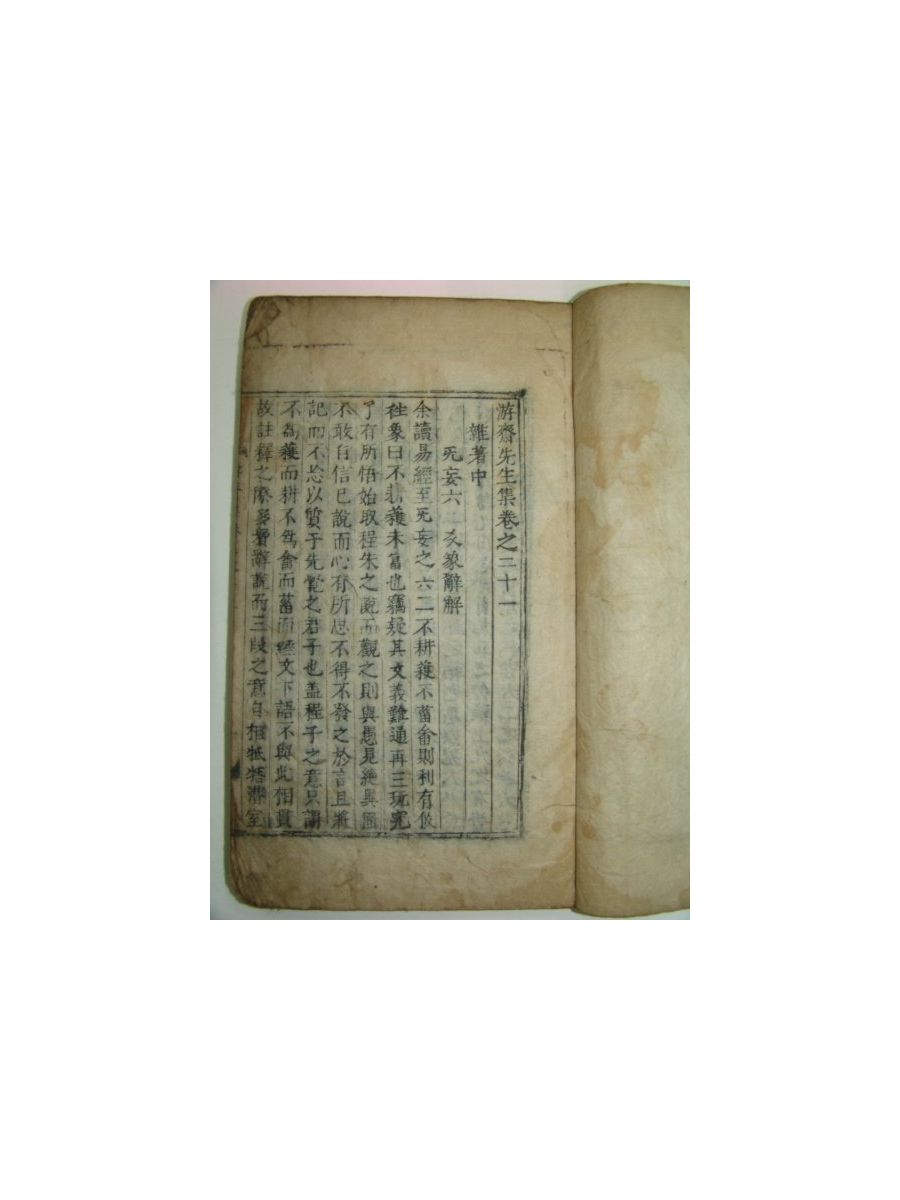 游齋先生集卷之二十一
雜著中
无妄六二爻象辭解
余讀易經至无妄之六二不耕穫不菑畬則利有攸
往象曰不耕穫未富也竊疑其文義難通再三玩究
了有所悟始取程朱之說而觀之則與愚見絶異固
不敢自信已說而心有所思不得不發之於言且將
記而不忘以質于先覺之君子也盖程子之意只謂
不為穫而耕不爲畬而菑而經文下語不與此相貫
故註釋之際多費辭說而三段之意自相牴牾潜室